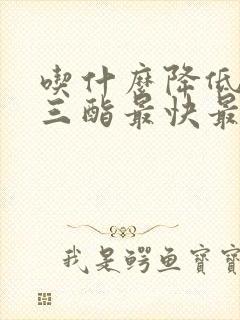 喫什麽降低
三酯最快最
我是鳄鱼寶寶